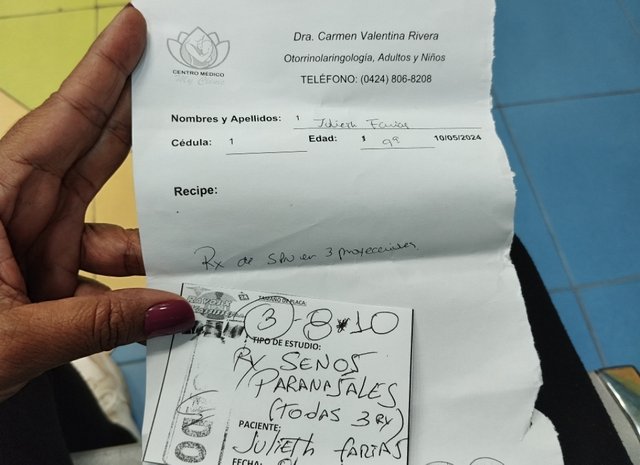 Dra. Carmen Valentina Rivera
Otorrinolaringología, Adultos y Niños
TELÉFONO: (0424) 806-8208
CENTRO MÉDICO
Nombres y Apellidos: 1 Julieth Farias
Cédula: 1 Edad: 1 9a 10/05/2024
Recipe:
Rx de SPN en 3 proyecciones.
TAMAÑO DE PLACA:
3 - 8x10
TIPO DE ESTUDIO:
RX SENOS
PARANASALES
(TODAS 3 RX)
PACIENTE:
JULIETH FARIAS
FECHA: